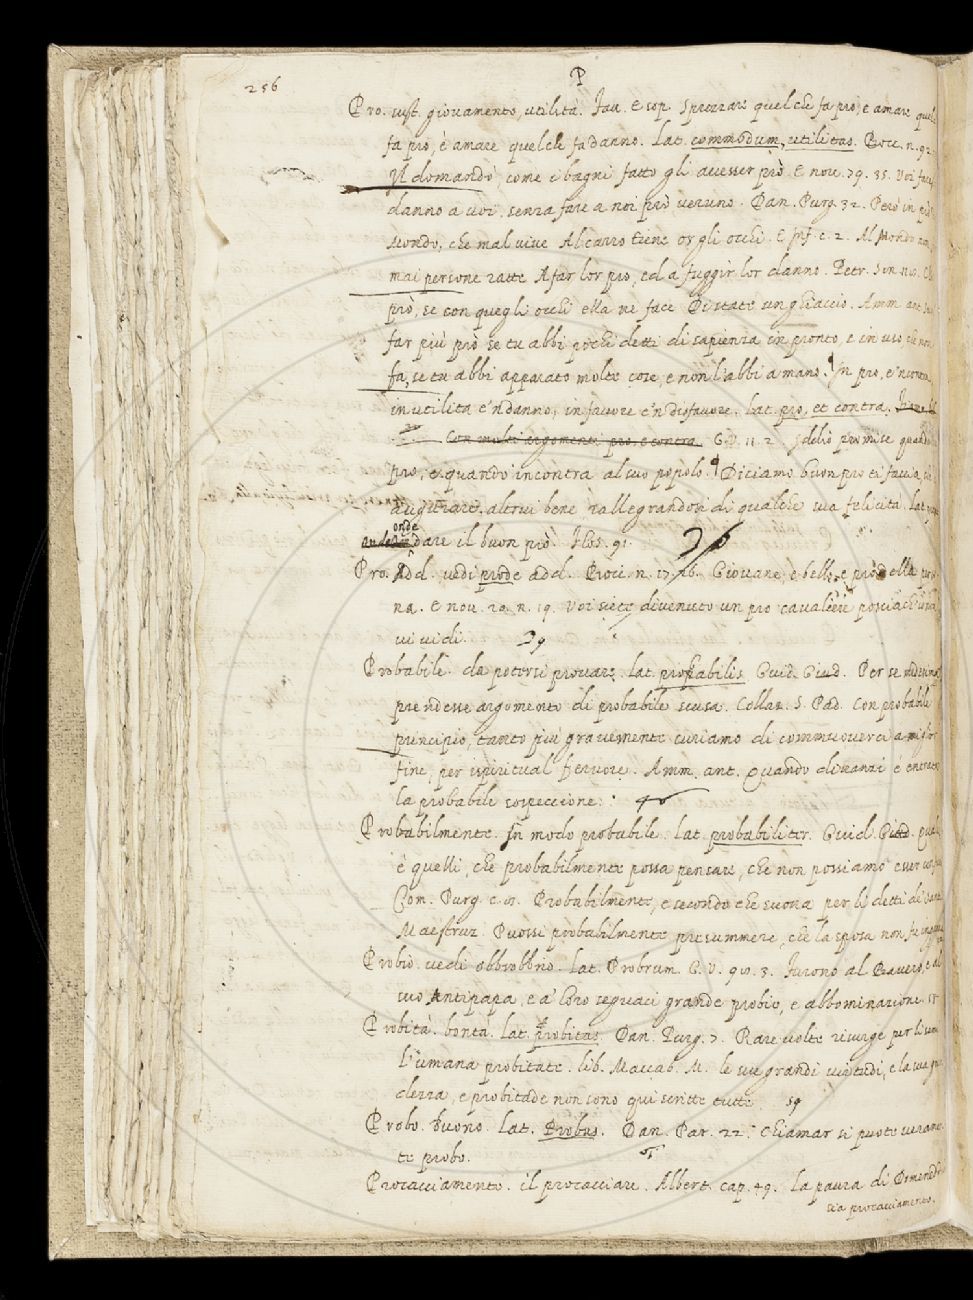 256
P
Pro. sust. giovamento, utilità. Fav. Esop. Sprezzare quel che fa prò, e amare quel
fa prò, è amare quel che fa danno. Lat. commodum, utilitas. Bocc. n. 92.
Il domandò, come i bagni fatto gli avesser prò. E nov. 79. 35. Voi
danno a voi, senza fare a noi prò veruno. Dan. Purg. 32. Però in prò
Mondo, che mal vive Al carro tiene or gli occhi. E Inf. c. 2. Al Mondo non
mai persone ratte A far lor pro, ed a fuggir lor danno. Petr. Son.
prò, se con quegli occhi ella ne face Di state un ghiaccio. Amm. ant.
far più prò se tu abbi pochi detti di sapienza in pronto, e in uso, che non
fa, se tu abbi apparato molte cose, e non l'abbi a mano. In pro, e 'ncontra,
in utilità e 'n danno, in favore e 'n disfavore. Lat. pro, et contra.
Con molti argomenti pro, e contra G. V. 11. 2. Iddio promise quando
pro, e quando incontra al suo popolo. Diciamo buon pro ti faccia,
augurare altrui bene rallegrandosi di qualche sua felicità. Lat.
onde dare il buon prò. Flos. 91. 36
Pro. Add. vedi prode add. Bocc. n. 17. 16. Giovane, e bella, e prò della
na. E nov. 20. n. 19. Voi siete divenuto un pro cavalieri posciachè
vi vidi. 39
Probabile. da potersi provare. Lat. probabilis. Guid. Giud. Per se medesima
prendesse argomento di probabile scusa. Collaz. S. Pad. Con probabile
principio, tanto più gravemente curiamo di commuoverci a migliore
fine, per ispiritual fervore. Amm. ant. Quando dinanzi è entrata
la probabile sospeccione. 40
Probabilmente. In modo probabile. Lat. probabiliter. Guid. Giud.
è quelli, che probabilmente possa pensare, che non possiamo esser
Com. Purg. c. Probabilmente, e secondo che suona per li detti di
Maestruz. Puossi probabilmente presummere, che la sposa non fu
Probio. vedi obbrobbrio. Lat. Probrum. G. V. 90. 3. Furono al Bavero, e al
suo Antipapa, e a' loro seguaci grande probio, e abbominazione.
Probità. bontà. Lat. probitas. Dan. Purg. 7. Rare volte risurge per li rami
L'umana probitate. Lib. Maccab. M. le sue grandi virtudi, e la sua
dezza, e probitade non sono qui scritte tutte. 59
Probo. buono. Lat. Probus. Dan. Par. 22. Chiamar si puote veramen-
te probo.
Procacciamento. il procacciare. Albert. cap. 49. la paura di Domenedio
sia procacciamento.